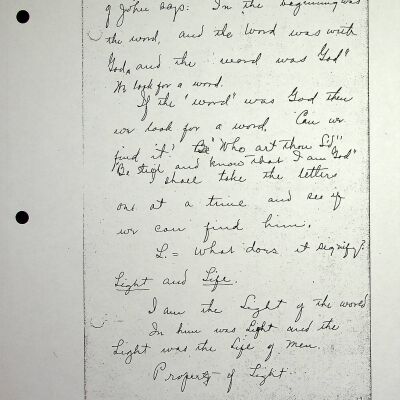 of John says: In the beginning was
the word, and the Word was with
God, and the word was God"
We look for a word.
If the "word" was God then
we look for a word. Can we
find it? "Who art thou Ld"
"Be still and know that I am God"
I shall take the letters
one at a time and see if
we can find him.
L. = What does it signify?
Light and Life.
I am the Light of the world
In him was Light and the
Light was the Life of men.
Property of Light